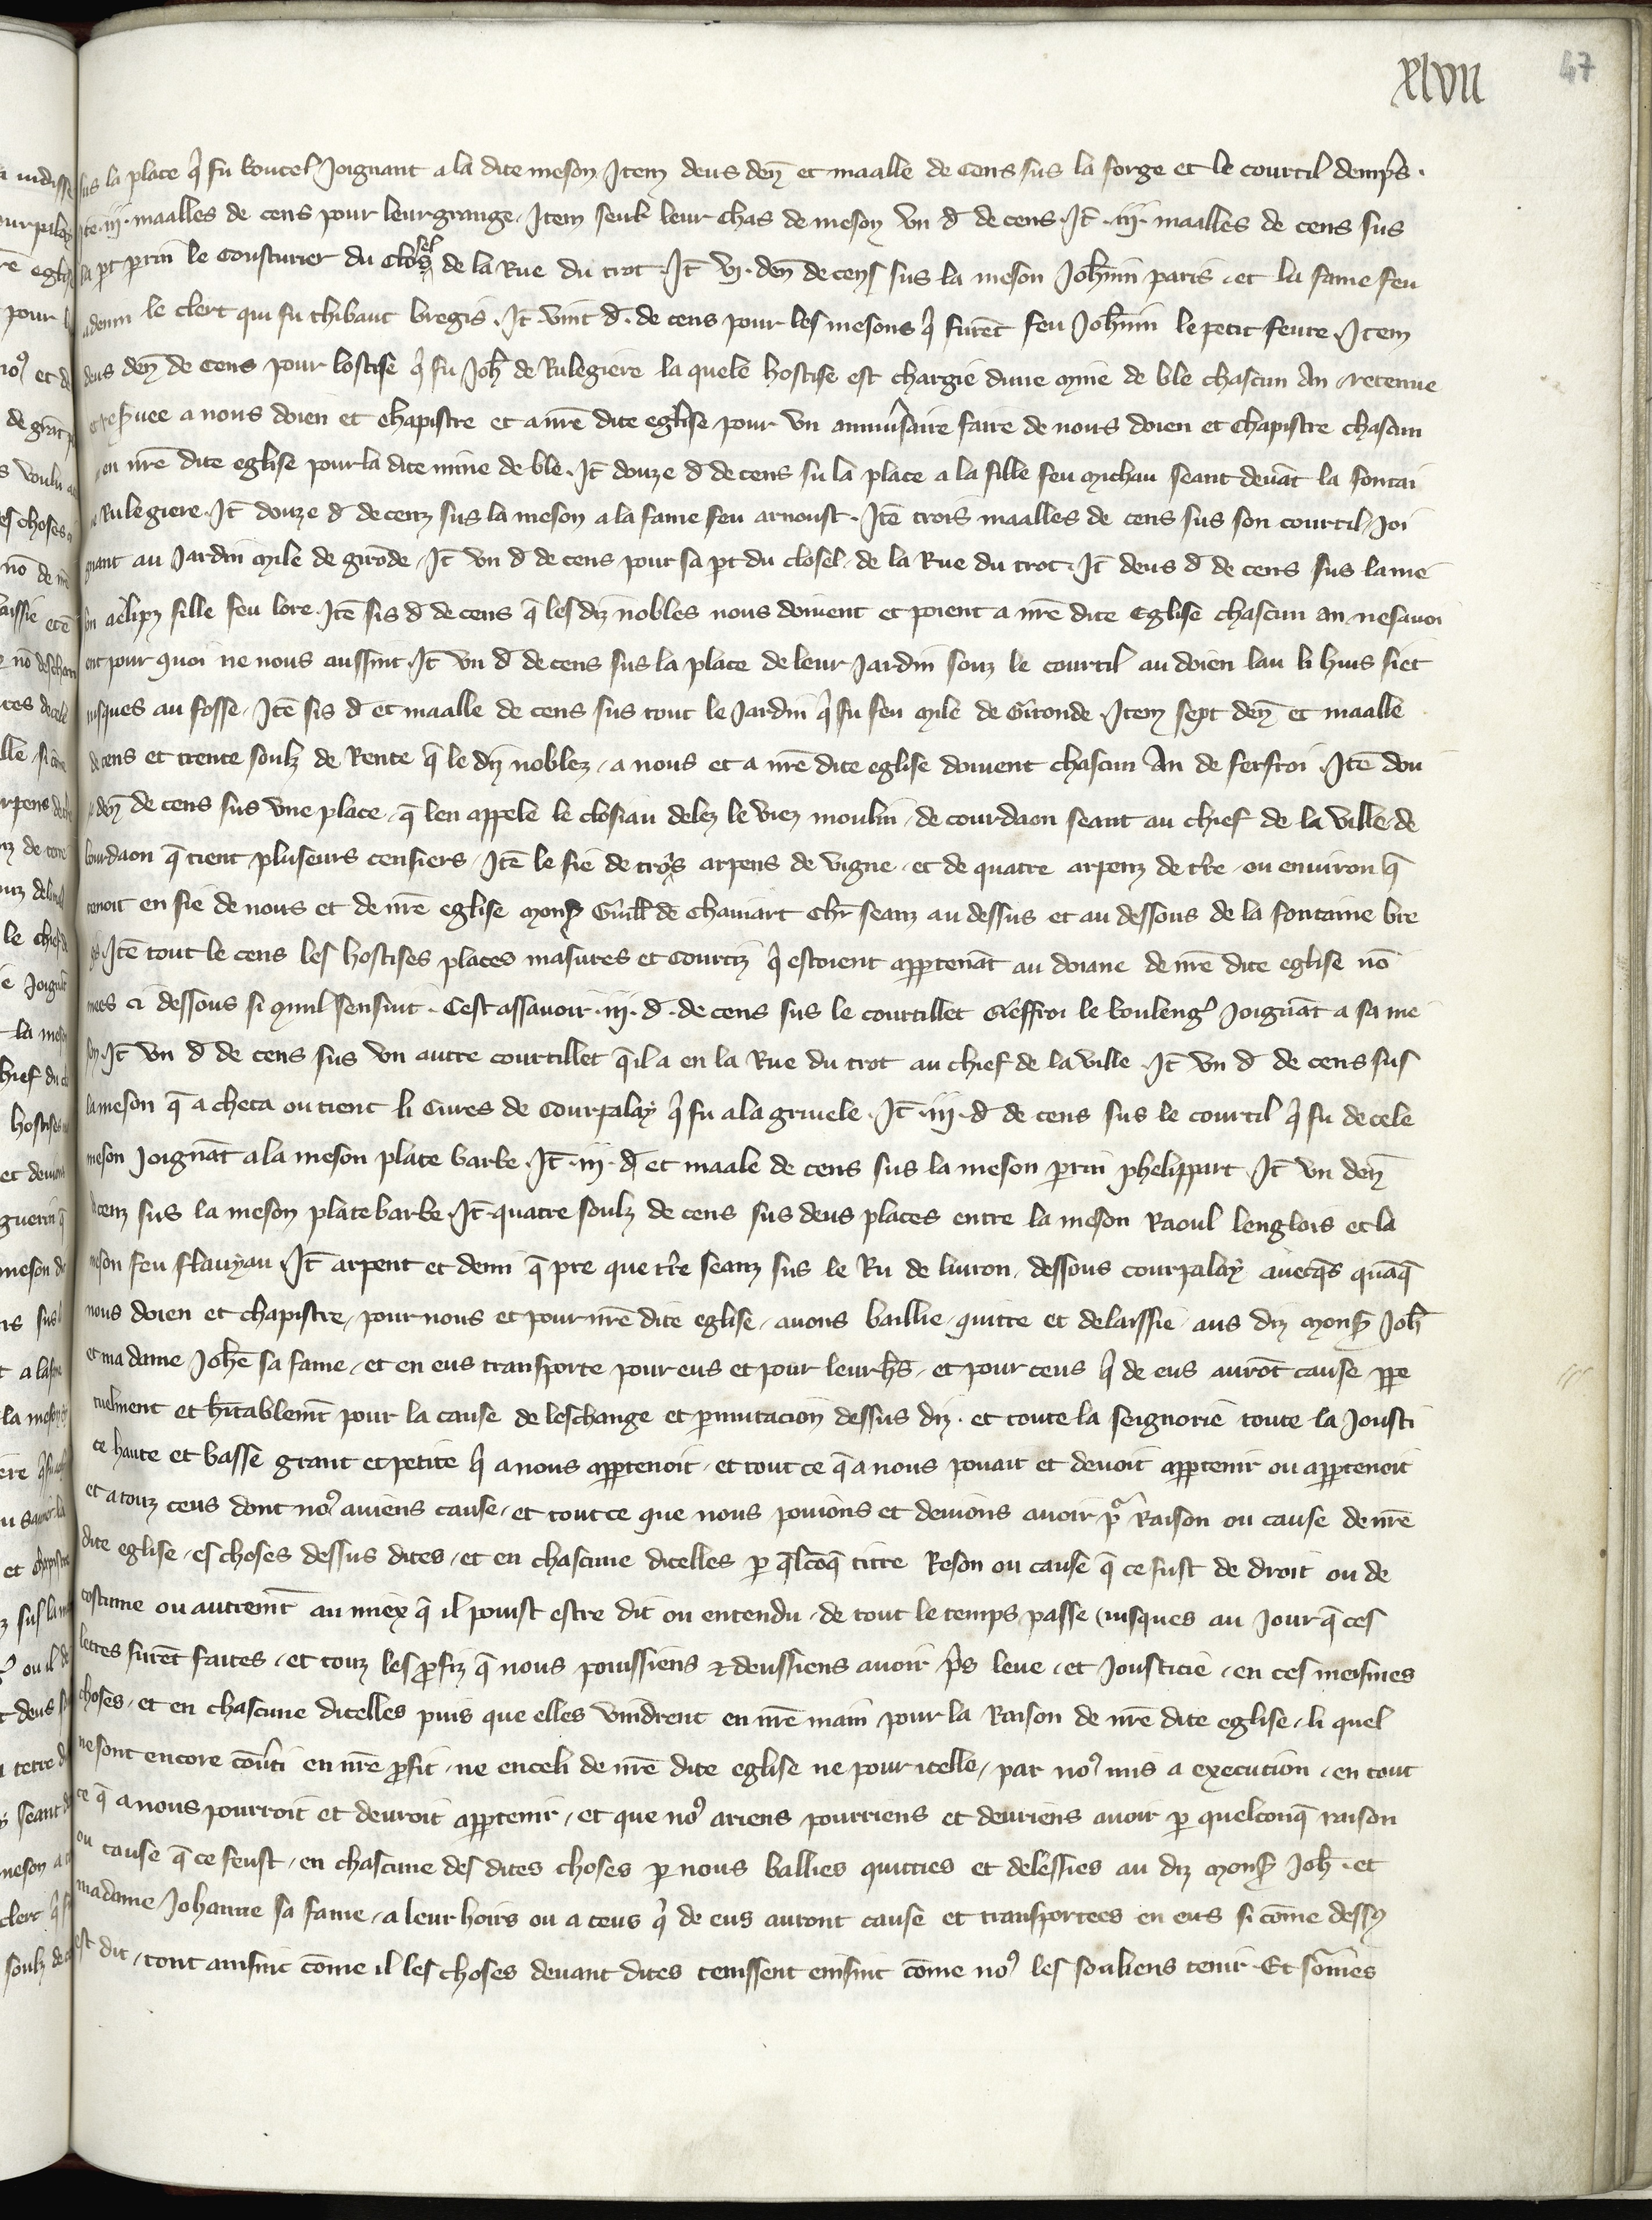 xlvii 47
sus la place q̄ fu boucel Joignant a la dite meson Item deus den̄ et maalle de Cens sus la forge et le courtil demp̄s .
Itē .iij. maalles de cens pour leur grange . Item seuk leur chas de meson vn d̄ de cens . It̄ .iij. maalles de cens sus
la pt p̄rin le Cousturier du closel de la Rue du trot . It̄ vj . den̄ de cens sus la meson Joh̄nin paris . et la fame feu
adenin le clerc qui fu thibaut bregis . It̄ vint d̄ . de cens pour les mesons q̄ furēt feu Joh̄nin le petit feure . Item
deus den̄ de Cens pour lostise q̄ fu Joh̄ de Rulegiere la quele hostise est chargie dune mine de ble chascun An retenue
et res̄uee a nous doien et chapistre et a nr̄e dite eglise / pour vn anniu̓saire faire de nous doien et chapistre chascun
en nr̄e dite eglise pour la dite mine de ble . It̄ douze d̄ de cens su la place a la fille feu michau seant deuāt la fontai
ne Rulegiere . It̄ douze d̄ de cenz sus la meson a la fame feu arnoust . Itē trois maalles de cens sus son courtil / Joi
gnant au Jardin mile de girōde / It̄ vn d̄ de cens pour sa pt du closel . de la Rue du trot . It̄ deus d̄ de cens sus la me
son aelipz fille feu lore . Itē sis d̄ de cens q̄ les diz nobles nous doiuent et poient a nr̄e dite Eglise chascun an / ne sauoi
ent pour quoi ne nous aussint . It̄ vn d̄ de cens sus la place de leur Jardin souz le courtil au doien lau li huis siet
jusques au fosse . Itē sis d̄ et maalle de cens sus tout le Jardin q̄ fu feu mile de Gironde . Item sept den̄ et maalle
de cens et trente soulz de Rente q̄ le diz noblez . a nous et a nr̄e dite eglise doiuent chascun An de ferfroi . Itē dou
ze den̄ de cens sus vne place . q̄ len appele le closiau delez le viez moulin . de courdaon seant au chief de la ville . de
courdaon q̄ tient pluseurs censiers . Itē le fie de trois arpens de vigne . et de quatre arpenz de tr̄e . ou enuiron q̄
tenoit en fie de nous et de nr̄e eglise mons̄ Guill̄ de Chauiart Chr̄ seanz au dessus et au dessous de la fontaine bre
gis . Itē tout le cens les hostises places masures et Courtiz q̄ estoient apptenāt au doiane de nr̄e dite eglise nō
mees ci dessous si qm̄l sensuit . Cest assauoir .iij. d̄ . de cens sus le courtillet Gieffroi le bouleng̓ Joignāt a sa me
son . It̄ vn d̄ de cens sus vn autre courtillet q̄ il a en la Rue du trot au chief de la ville . It̄ vn d̄ de cens sus
la meson q̄ a cheta ou tient li Cures de Courpalay q̄ fu a la griuele . It̄ .iij. d̄ de cens sus le courtil q̄ fu de cele
meson Joignāt a la meson plate barbe . It̄ .iij. d̄ et maale de cens sus la meson p̄rin phelippart . It̄ vn den̄
de cenz sus la meson platebarbe . It̄ quatre soulz de cens sus deus places entre la meson Raoul lenglois et la
meson feu flauyau . It̄ arpent et demi q̄ pre que tr̄e seanz sus le Ru de liuron . dessous courpalay auecq̄s quāq̄
nous doien et chapistre / pour nous et pour nr̄e dite eglise . auons baillie . quitte et delaissie . aus diz mons̄ Joh̄
et ma dame Joh̄e sa fame . et en eus transporte pour eus et pour leur h̄s . et pour ceus q̄ de eus aurōt cause ppe
tuelment et h̄itablemt̄ pour la cause de leschange et p̄mutacion dessus diz . et toute la seignorie toute la Jousti
ce haute et basse grant et petite q̄ a nous apptenoit . et tout ce q̄ a nous pouait et deuoit apptenir ou apptenoit
et a touz ceus dont no⁹ auiens cause . et tout ce que nous pouions et deuions auoir p̄ Raison ou cause de nr̄e
dite eglise . es choses dessus dites . et en chascune dicelles p q̄lcōq̄ titre Reson ou cause q̄ ce fust de droit ou de
costume ou autremt̄ au miex q̄ il pouist estre dit ou entendu . de tout le temps passe iusques au Jour q̄ ces
lettres furēt faites . et touz les ꝓfiz q̄ nous pouissiens ⁊ deussiens auoir p̄s leue . et Jousticie . en ces meismes
choses . et en chascune dicelles puis que elles vindrent en nr̄e main pour la Raison de nr̄e dite eglise . li quel
ne sont encore cōu̓ti en nr̄e ꝓfit . ne en celi de nr̄e dite eglise ne pour icelle / par no⁹ mis a execution . en tout
ce q̄ a nous pourroit et deuroit apptenir . et que no⁹ ariens pourriens et deuriens auoir p quelconq̄ raison
ou cause q̄ ce feust . en chascune des dites choses p nous ballies quitties et delessies au diz mons̄ Joh̄ . et
madame Johanne sa fame . a leur hoirs ou a ceus q̄ de eus auront cause et transportees en eus si cōme dess⁹
est dit . tout ainsint cōme il les choses deuant dites tenissent einsint cōme no⁹ les souliens tenir . Et sōmes